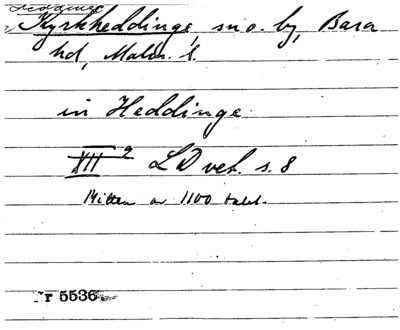 Heddinge
Kyrkheddinge, sn o. by, Bara
hd, Malm. l.
in Heddinge
XII a LD vet. s. 8
Mitten av 1100 talet.
Nr 5536